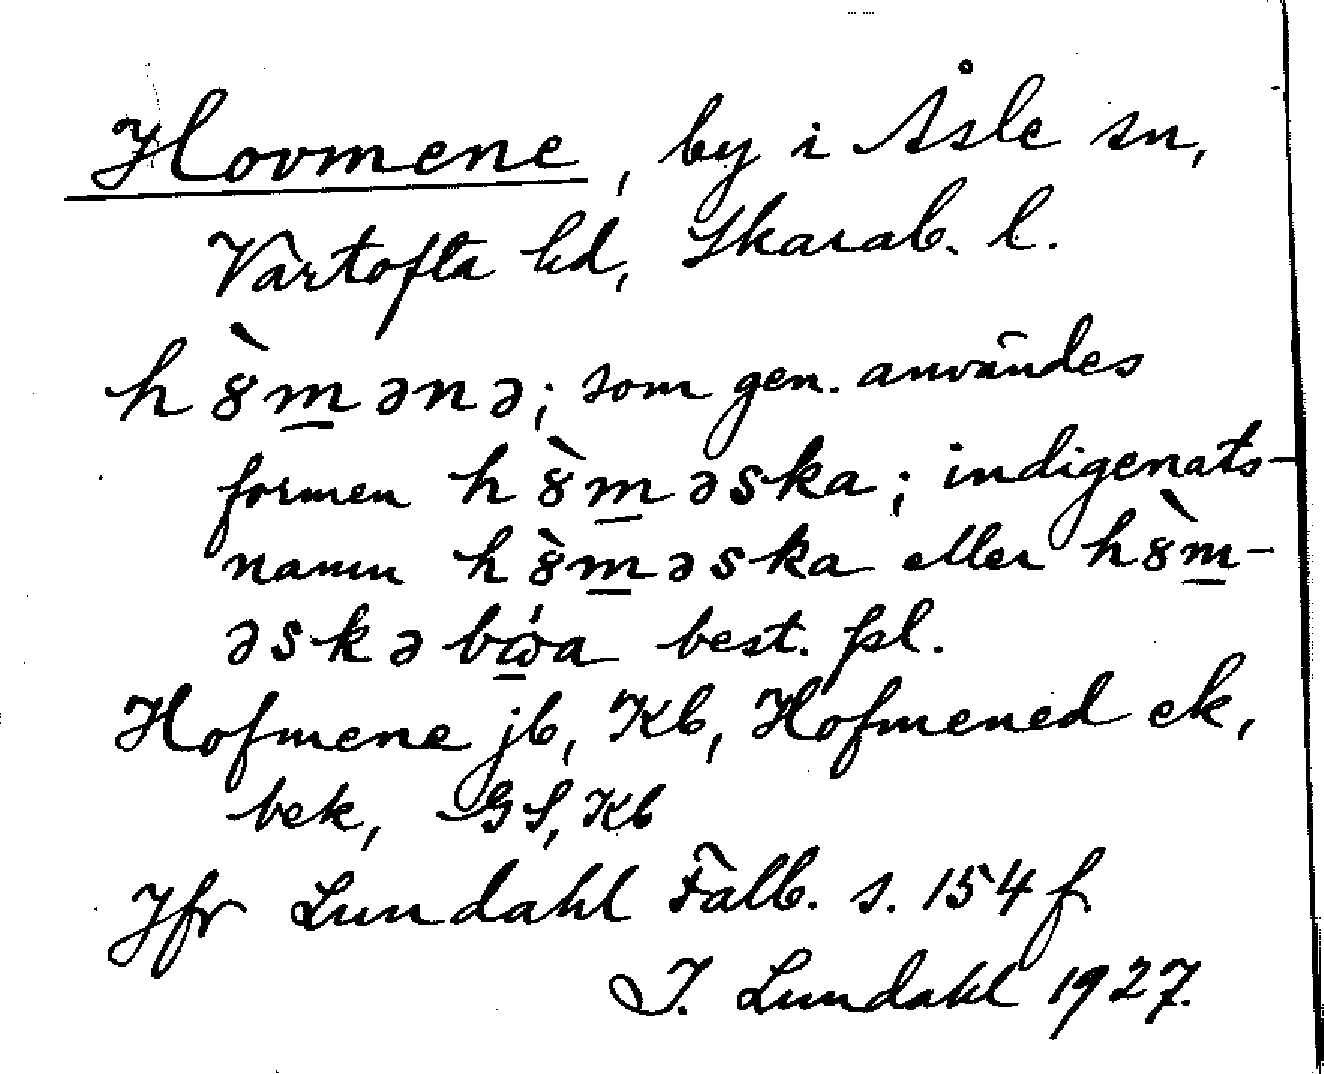 Hovmene, by i Åsle sn,
Vartofta hd, Skarab. l.
hȣ̀m̲ənə; som gen. användes
formen hȣ̀m̲əska; indigenats-
namn hȣ̀m̲əska eller hȣ̀m̲-
əskəbɷ̲́a best. pl.
Hofmene jb, Kb, Hofmened ek,
bek, GS, Kb
Jfr Lundahl Falb. s. 154 f
I. Lundahl 1927.